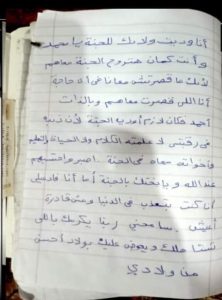 أنا وديت ولادك للجنة يا محمد
وأنت كمان هتروح الجنة معاهم
لأنك ما قصرتش معانا في أي حاجة
أنا اللي قصرت معاهم وبالذات
أحمد فكان لازم أوديه الجنة لأن ذنبه
في رقبتي لا علمته الكلام ولا الحياة ولا التعليم
وأخواته معاه في الجنة اصبر واحتسبهم
عند الله ويابختك بالجنة أما أنا فادعيلي
أنا كنت بتعذب في الدنيا ومش قادرة
أعيش سامحني ربنا يكرمك باللي
تستاهلك ويعوض عليك بولاد أحسن
من ولادي